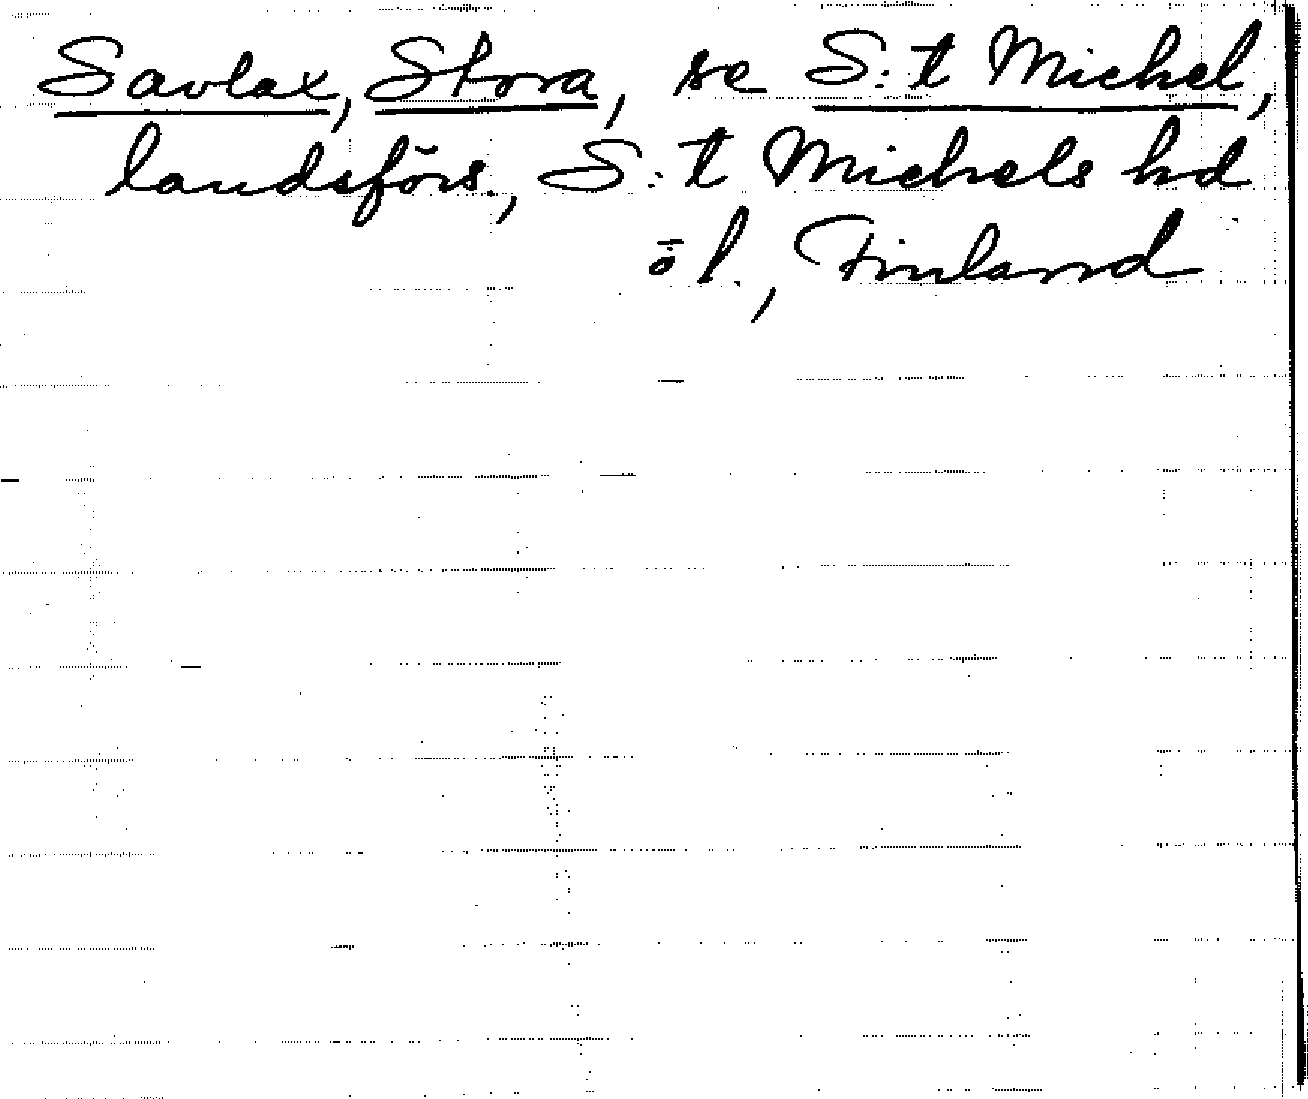 Savlax, Stora, se S:t Michel,
landsförs., S:t Michels hd
öl., Finland